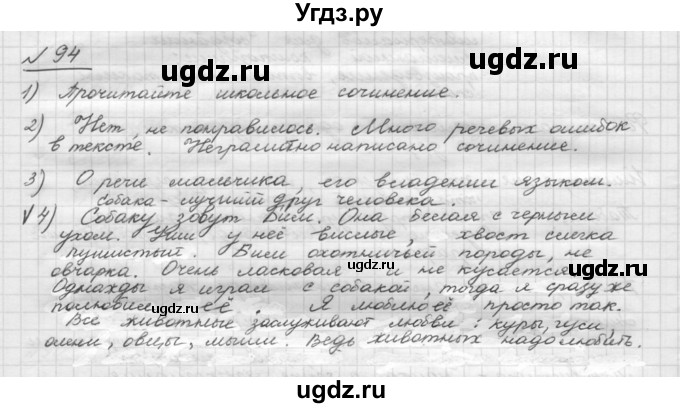 Угдз.ру
№ 94
ugdz.ru ugdz.ru
1) Прочитайте школьное сочинение.
2) Нет, не понравилось. Много речевых ошибок
в тексте. Неграмотно написано сочинение.
ugdz.ru ugdz.ru
3) О речи мальчика, его владении языком.
Собака - лучший друг человека.
√ 4) Собаку зовут Бим. Она белая с черным
ухом. Уши у неё вислые, хвост слегка
пушистый. Бим охотничьей породы, не
овчарка. Очень ласковая и не кусается.
ugdz.ru ugdz.ru
Однажды я играл с собакой, тогда я сразу же
полюбил её. Я люблю её просто так.
Все животные заслуживают любви: куры, гуси,
олени, овцы, мыши. Ведь животных надо любить.
ugdz.ru
ugdz.ru